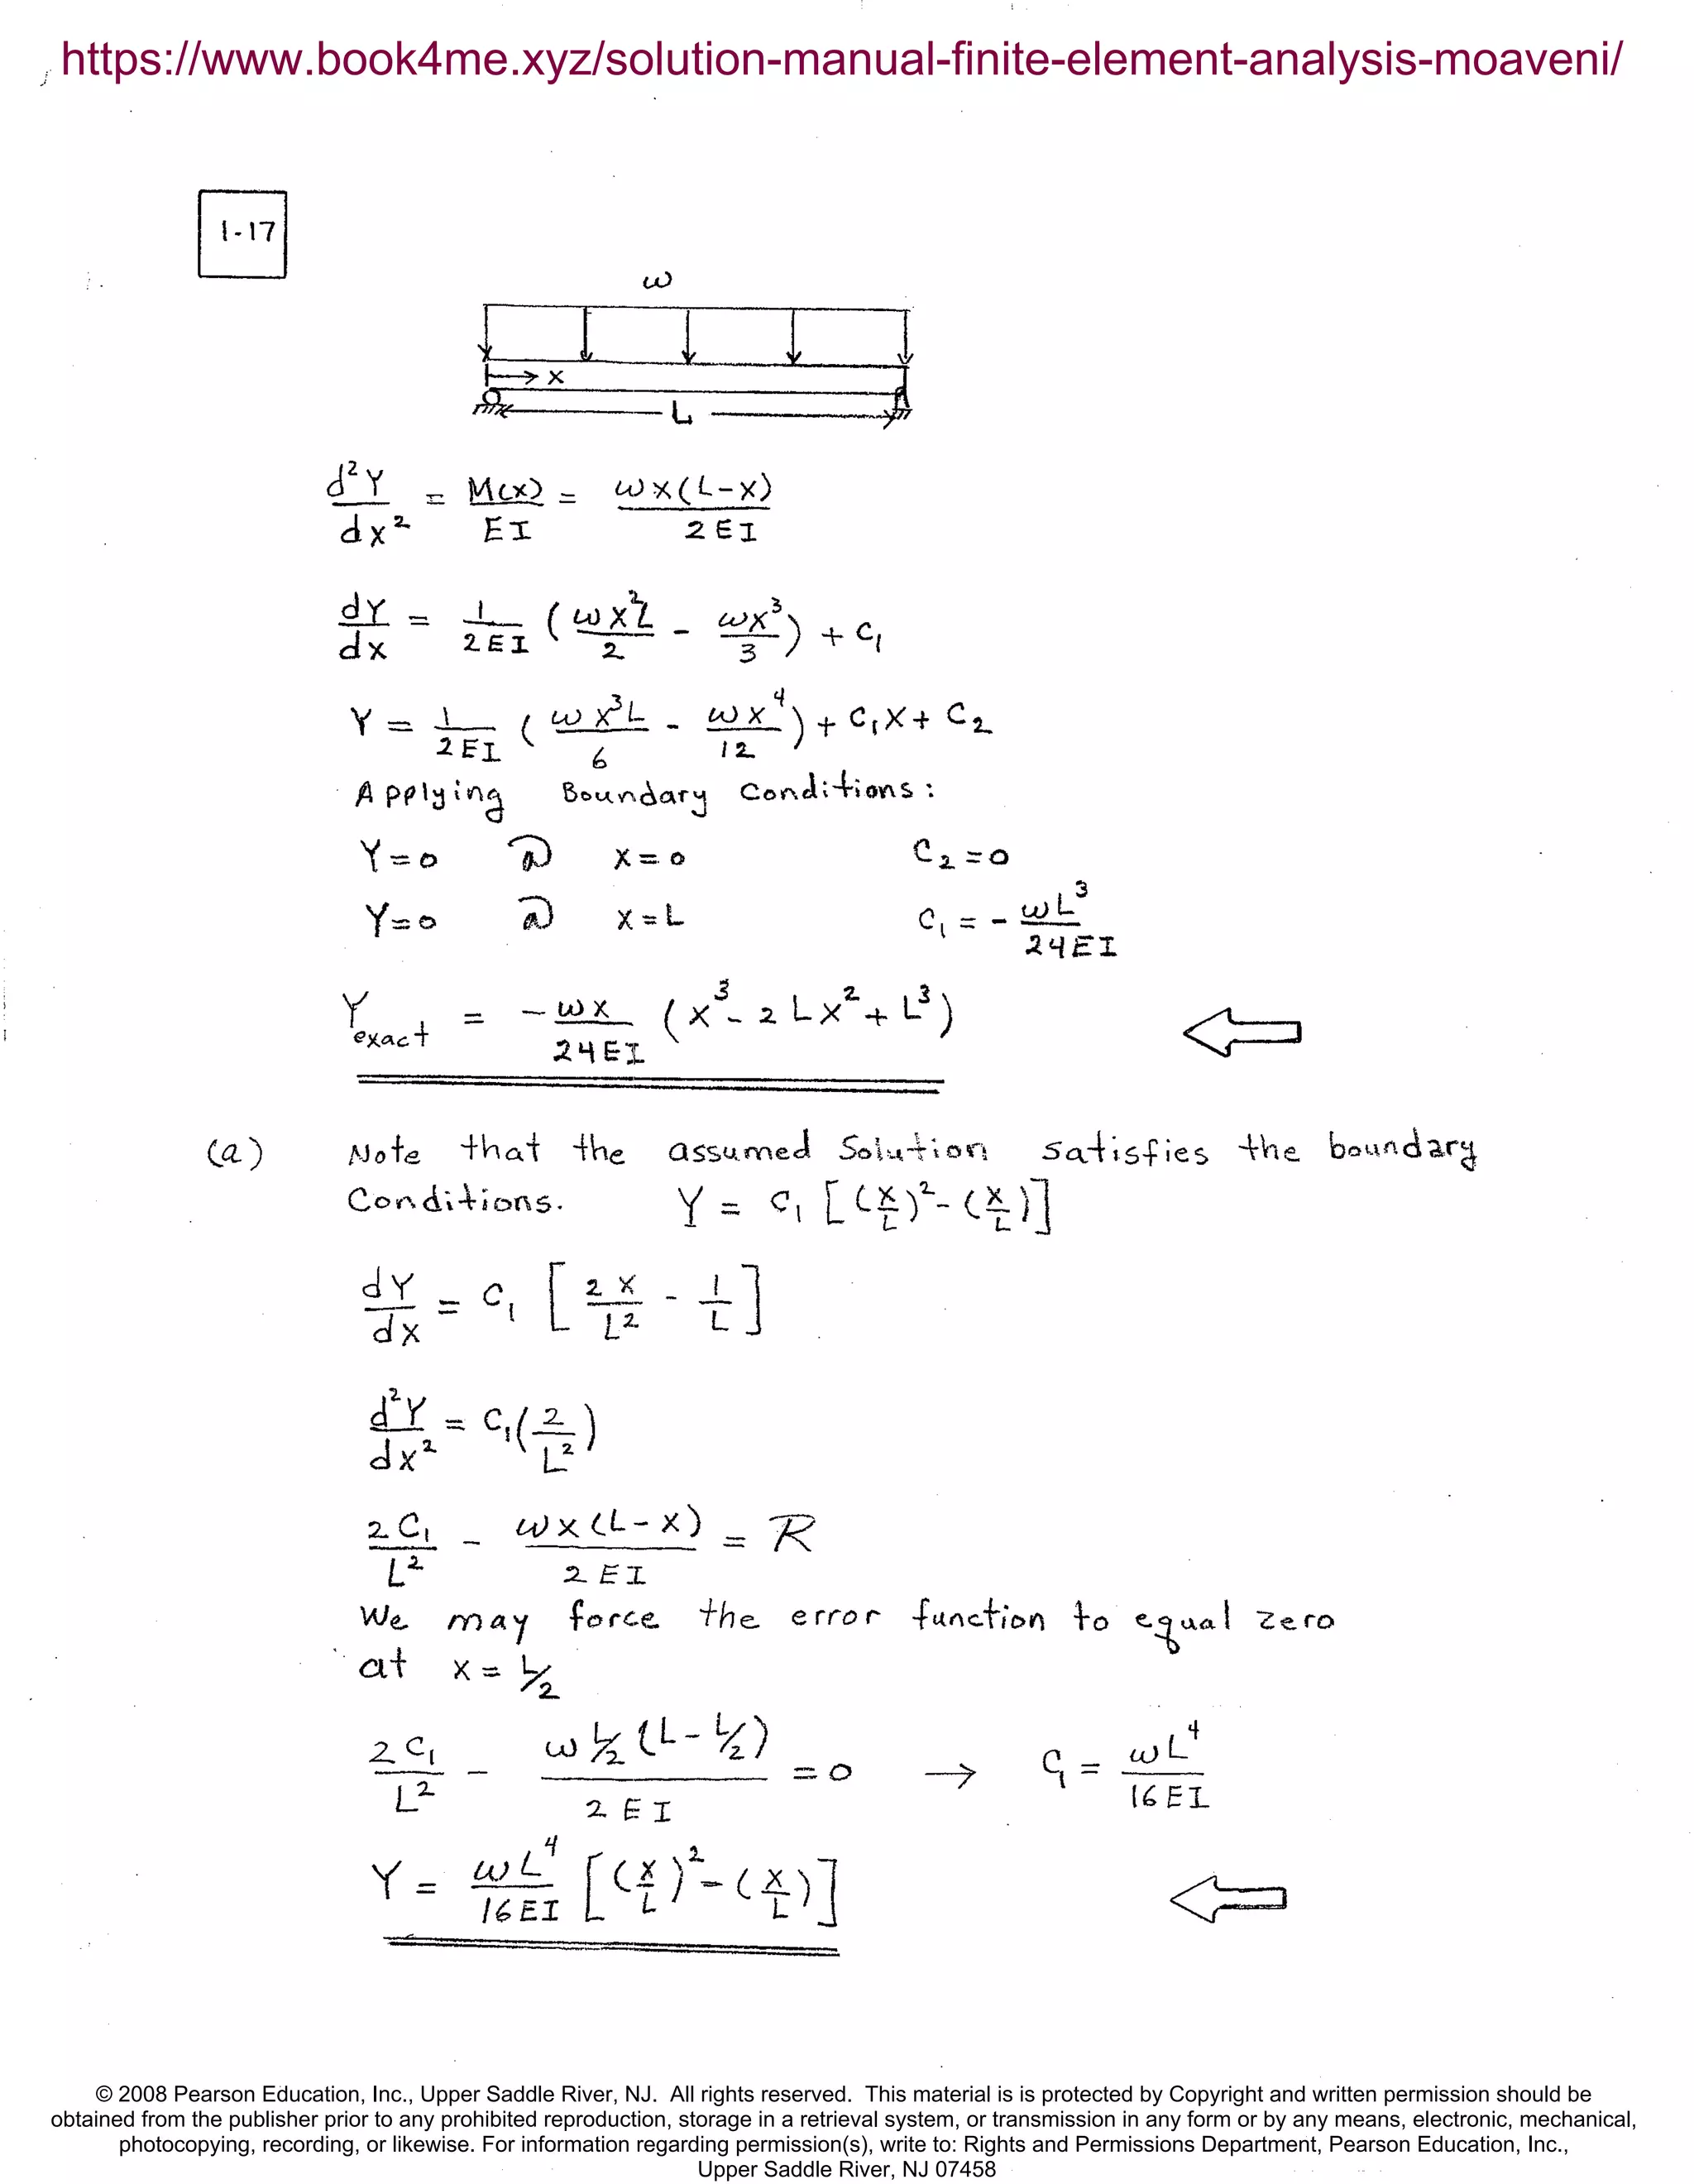 https://www.book4me.xyz/solution-manual-finite-element-analysis-moaveni/
1-17
ω
x
L
d²Y/dx² = M(x)/EI = ωx(L-x)/2EI
dY/dx = 1/2EI (ωx²L/2 - ωx³/3) + C₁
Y = 1/2EI (ωx³L/6 - ωx⁴/12) + C₁X + C₂
Applying Boundary Conditions:
Y=0 @ X=0 C₂=0
Y=0 @ X=L C₁ = - ωL³/24EI
Y exact = -ωx/24EI (x³-2Lx²+L³)
(a) Note that the assumed Solution satisfies the boundary
Conditions. Y = C₁ [(X/L)²-(X/L)]
dY/dX = C₁ [2X/L² - 1/L]
d²Y/dX² = C₁(2/L²)
2C₁/L² - ωX(L-X)/2EI = R
We may force the error function to equal zero
at X = L/2
2C₁/L² - ωL/2(L-L/2)/2EI = 0 → C₁ = ωL⁴/16EI
Y = ωL⁴/16EI [(X/L)²-(X/L)]
© 2008 Pearson Education, Inc., Upper Saddle River, NJ. All rights reserved. This material is is protected by Copyright and written permission should be
obtained from the publisher prior to any prohibited reproduction, storage in a retrieval system, or transmission in any form or by any means, electronic, mechanical,
photocopying, recording, or likewise. For information regarding permission(s), write to: Rights and Permissions Department, Pearson Education, Inc.,
Upper Saddle River, NJ 07458